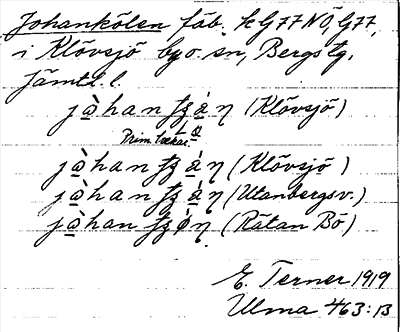 Johankölen, fäb. k G77 NÖ, G77,
i Klövsjö by o. sn, Bergs tg,
Jämtl. l.
jà̱han ꞎá̱ŋ (Klövsjö)
Prim. backar
jà̱han ꞎá̱ŋ (Klövsjö)
jà̱han ꞎá̱ŋ (Utanbergsv.)
jà̱han ꞎǿŋ (Rätan Bö)
E. Terner 1919
Ulma 463:13